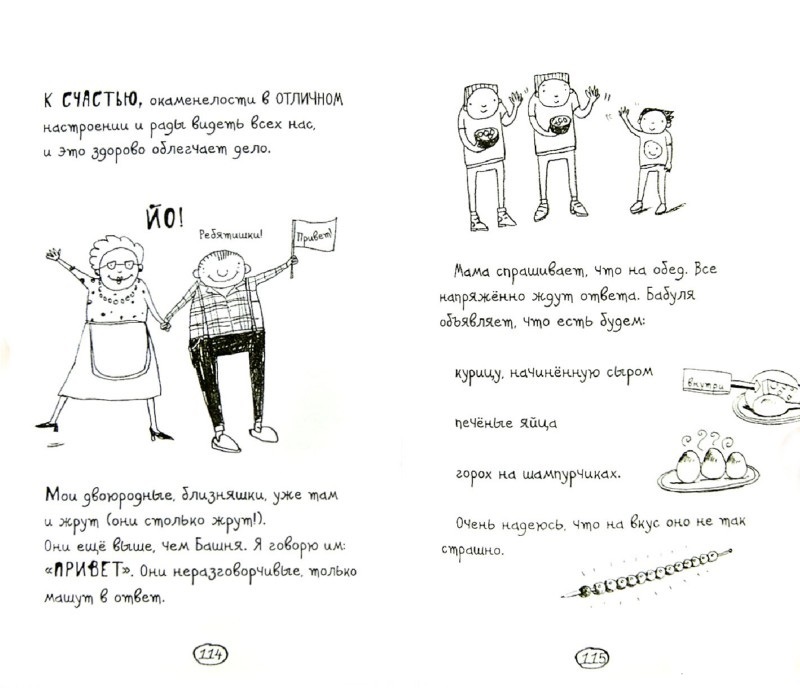 К СЧАСТЬЮ, окаменелости в ОТЛИЧНОМ
настроении и рады видеть всех нас,
и это здорово облегчает дело.
ЙО!
Ребятишки!
Привет!
Мои двоюродные, близняшки, уже там
и жрут (они столько жрут!).
Они ещё выше, чем Башня. Я говорю им:
«ПРИВЕТ». Они неразговорчивые, только
машут в ответ.
114
Мама спрашивает, что на обед. Все
напряжённо ждут ответа. Бабуля
объявляет, что есть будем:
курицу, начинённую сыром
внутри
печёные яйца
горох на шампурчиках.
Очень надеюсь, что на вкус оно не так
страшно.
115